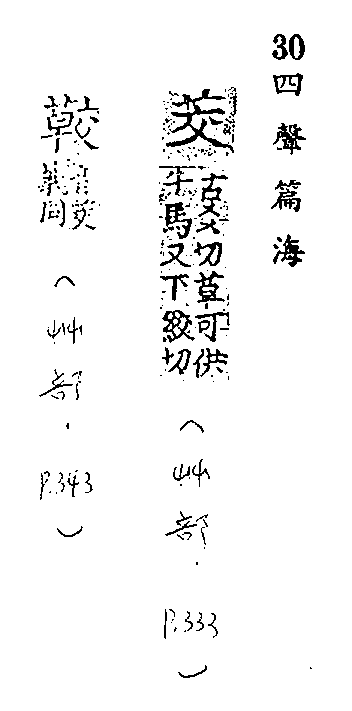 30 四聲篇海
茭
古爻切草可供
牛馬又下絞切
(艸部.P.333)
音茭
義同
(艸部.P.343)